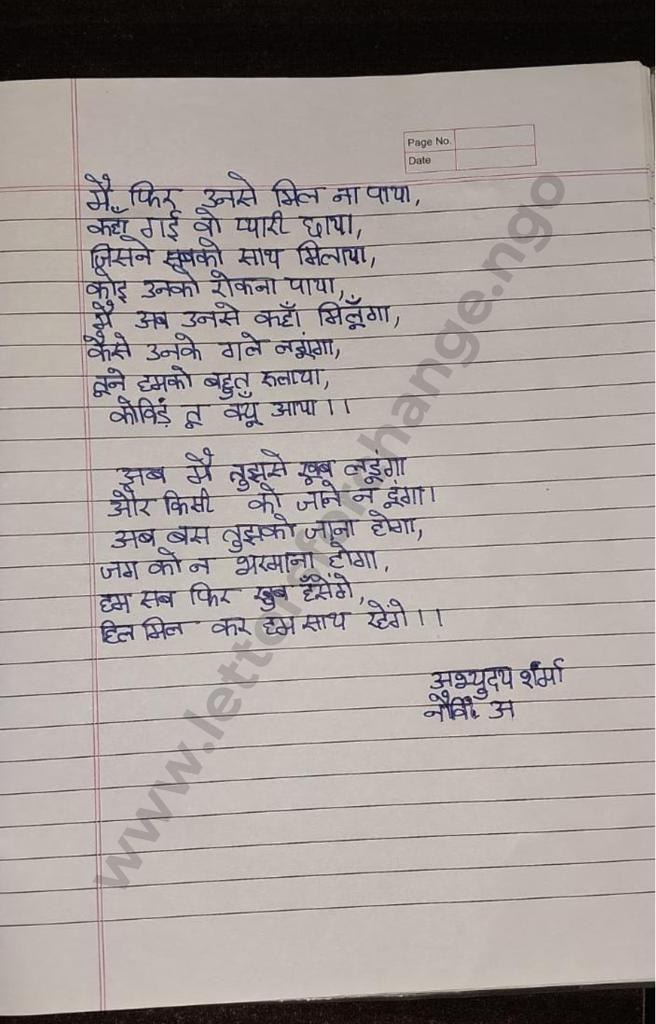 Page No.
Date
मै, फिर उनसे मिल ना पाया,
कहाँ गई वो प्यारी छाया,
जिसने सबको साथ मिलाया,
कोई उनको रोकना पाया,
मै अब उनसे कहाँ मिलूँगा,
कैसे उनके गले लगूंगा,
तूने हमको बहुत रुलाया,
कोविड तू क्यू आया।।
अब मै तुझसे खूब लडूंगा
और किसी को जाने न दूंगा।
अब बस तुझको जाना होगा,
जग को न भरमाना होगा,
हम सब फिर खुब हँसेंगे,
हिल मिल कर हम साथ रहेंगे।।
अभ्युदय शर्मा
नौवीं अ
www.lettersforchange.ngo